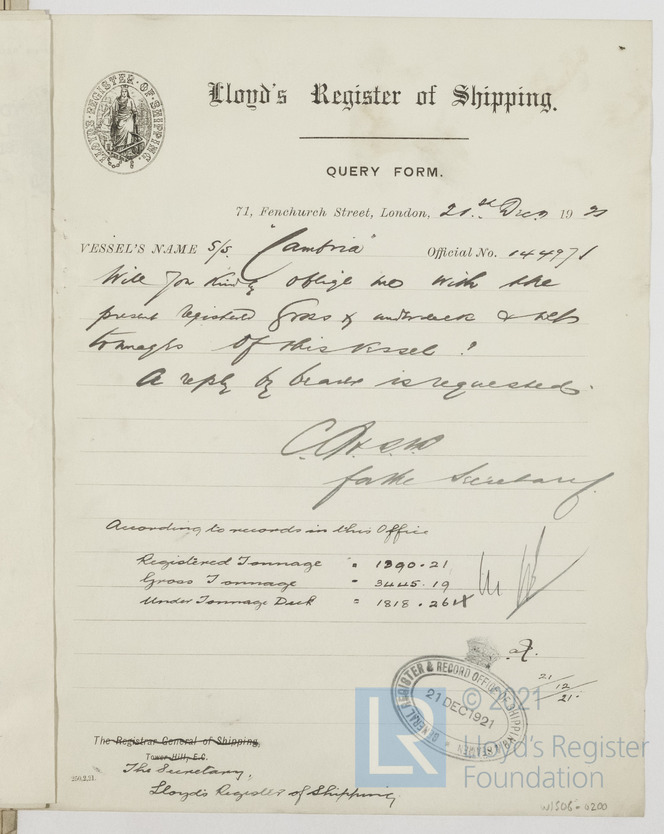 LLOYD'S · REGISTER · OF · SHIPPING ·
Lloyd's Register of Shipping.
QUERY FORM.
71, Fenchurch Street, London, 21st Decr 1921
VESSEL'S NAME S/S. "Cambria" Official No. 144971
Will you kindly oblige me with the
present registered gross & underdeck & nett
tonnages of this vessel?
A reply by bearer is requested.
for the Secretary.
According to records in this Office
Registered Tonnage = 1390.21
Gross Tonnage = 3445.19
Under Tonnage Deck = 1818.26
21/12/21.
GENERAL REGISTER & RECORD OFFICE OF SHIPPING & SEAMEN
21 DEC 1921
© 2021
Lloyd's Register
Foundation
LR
The Registrar General of Shipping,
Tower Hill, E.C.
250,2,21.
The Secretary,
Lloyd's Register of Shipping
W1506-0200